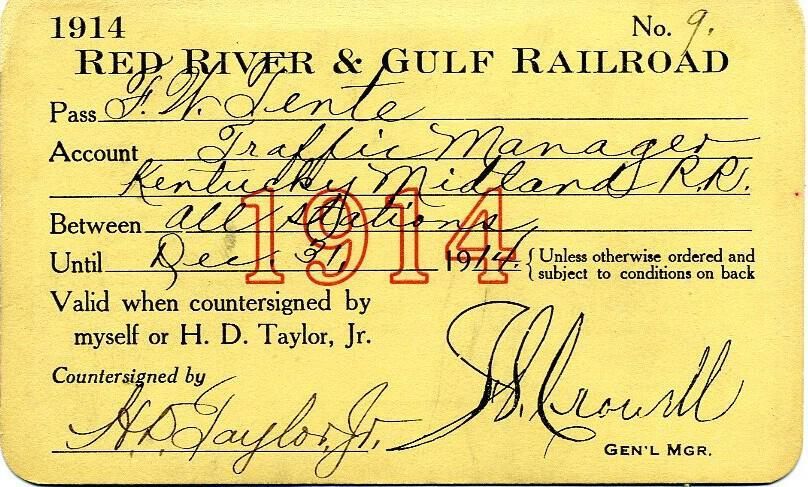 1914 No. 9.
RED RIVER & GULF RAILROAD
Pass F. W. Tente
Account Traffic Manager
Kentucky Midland R.R.
1914
Between all stations
Until Dec. 31, 1914. { Unless otherwise ordered and
subject to conditions on back
Valid when countersigned by
myself or H. D. Taylor, Jr.
Countersigned by
H.D. Taylor, Jr. Crowell
GEN'L MGR.